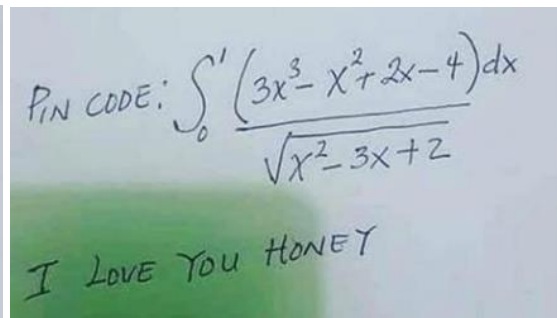 PIN CODE: ∫₀¹ (3x³ - x² + 2x - 4)dx
√x² - 3x + 2
I LOVE YOU HONEY